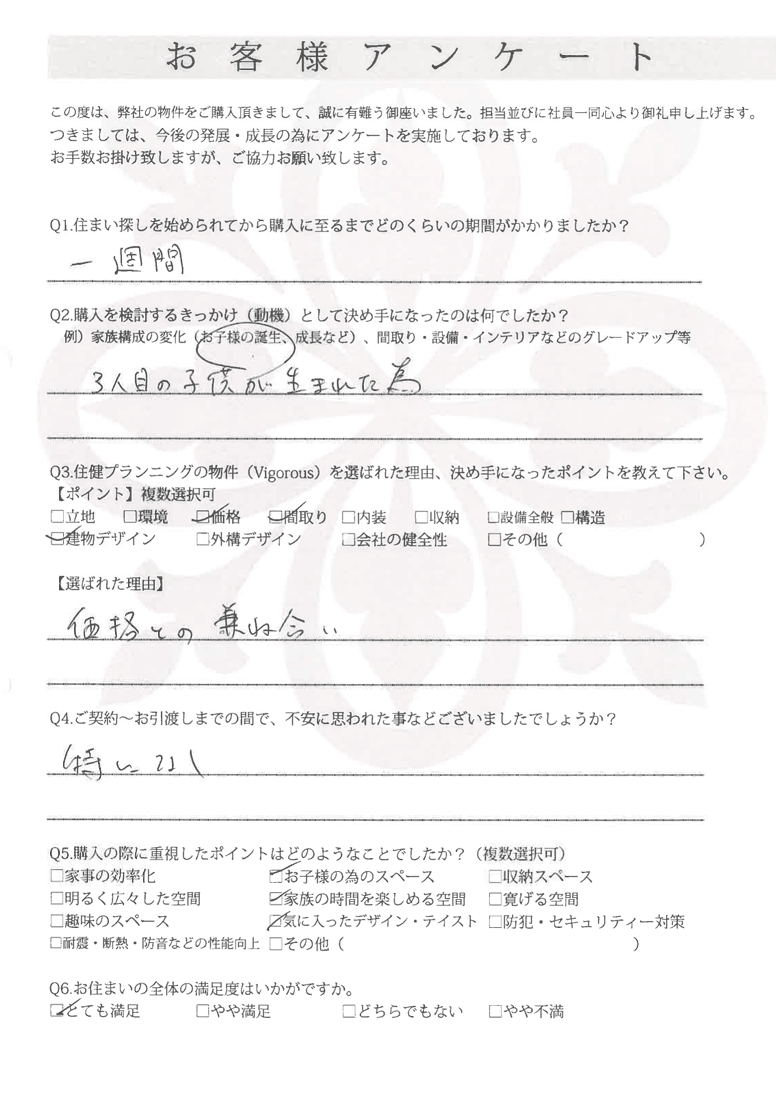 お客様アンケート
この度は、弊社の物件をご購入頂きまして、誠に有難う御座いました。担当並びに社員一同心より御礼申し上げます。
つきましては、今後の発展・成長の為にアンケートを実施しております。
お手数お掛け致しますが、ご協力お願い致します。
Q1.住まい探しを始められてから購入に至るまでどのくらいの期間がかかりましたか？
一週間
Q2.購入を検討するきっかけ（動機）として決め手になったのは何でしたか？
例）家族構成の変化（お子様の誕生、成長など）、間取り・設備・インテリアなどのグレードアップ等
3人目の子供が生まれた為
Q3.住健プランニングの物件（Vigorous）を選ばれた理由、決め手になったポイントを教えて下さい。
【ポイント】複数選択可
□立地 □環境 ☑価格 ☑間取り □内装 □収納 □設備全般 □構造
☑建物デザイン □外構デザイン □会社の健全性 □その他（ ）
【選ばれた理由】
価格との兼ね合い
Q4.ご契約～お引渡しまでの間で、不安に思われた事などございましたでしょうか？
特になし
Q5.購入の際に重視したポイントはどのようなことでしたか？（複数選択可）
□家事の効率化 ☑お子様の為のスペース □収納スペース
□明るく広々した空間 ☑家族の時間を楽しめる空間 □寛げる空間
□趣味のスペース ☑気に入ったデザイン・テイスト □防犯・セキュリティー対策
□耐震・断熱・防音などの性能向上 □その他（ ）
Q6.お住まいの全体の満足度はいかがですか。
☑とても満足 □やや満足 □どちらでもない □やや不満